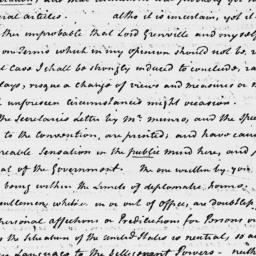 cial articles. altho it is uncertain, yet it
this improbable that Lord Grenville and myself
on Terms which in my opinion should not be r
l Case I shall be strongly induced to conclude, ra
lays, risque a change of views and measures or
unforeseen circumstances might occasion.
he Secretaries Letter by Mr. Munro, and the Spee
to the convention, are printed; and have caus
reable Sensation in the public mind here, and
at of the Government. The one written by you
being within the Limits of diplomatic
entlemen, whether in or out of Office, are doubtless
personal affections or Predilections for Persons or
the Situation of the United States is neutral, so a
Language to the belligerent Powers - neith